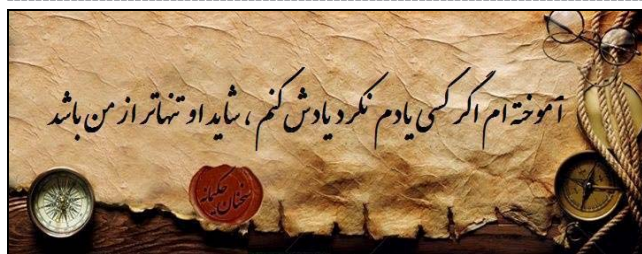 آموخته ام اگر کسی یادم نکرد یادش کنم ، شاید او تنهاتر از من باشد
سخنان حکیمانه